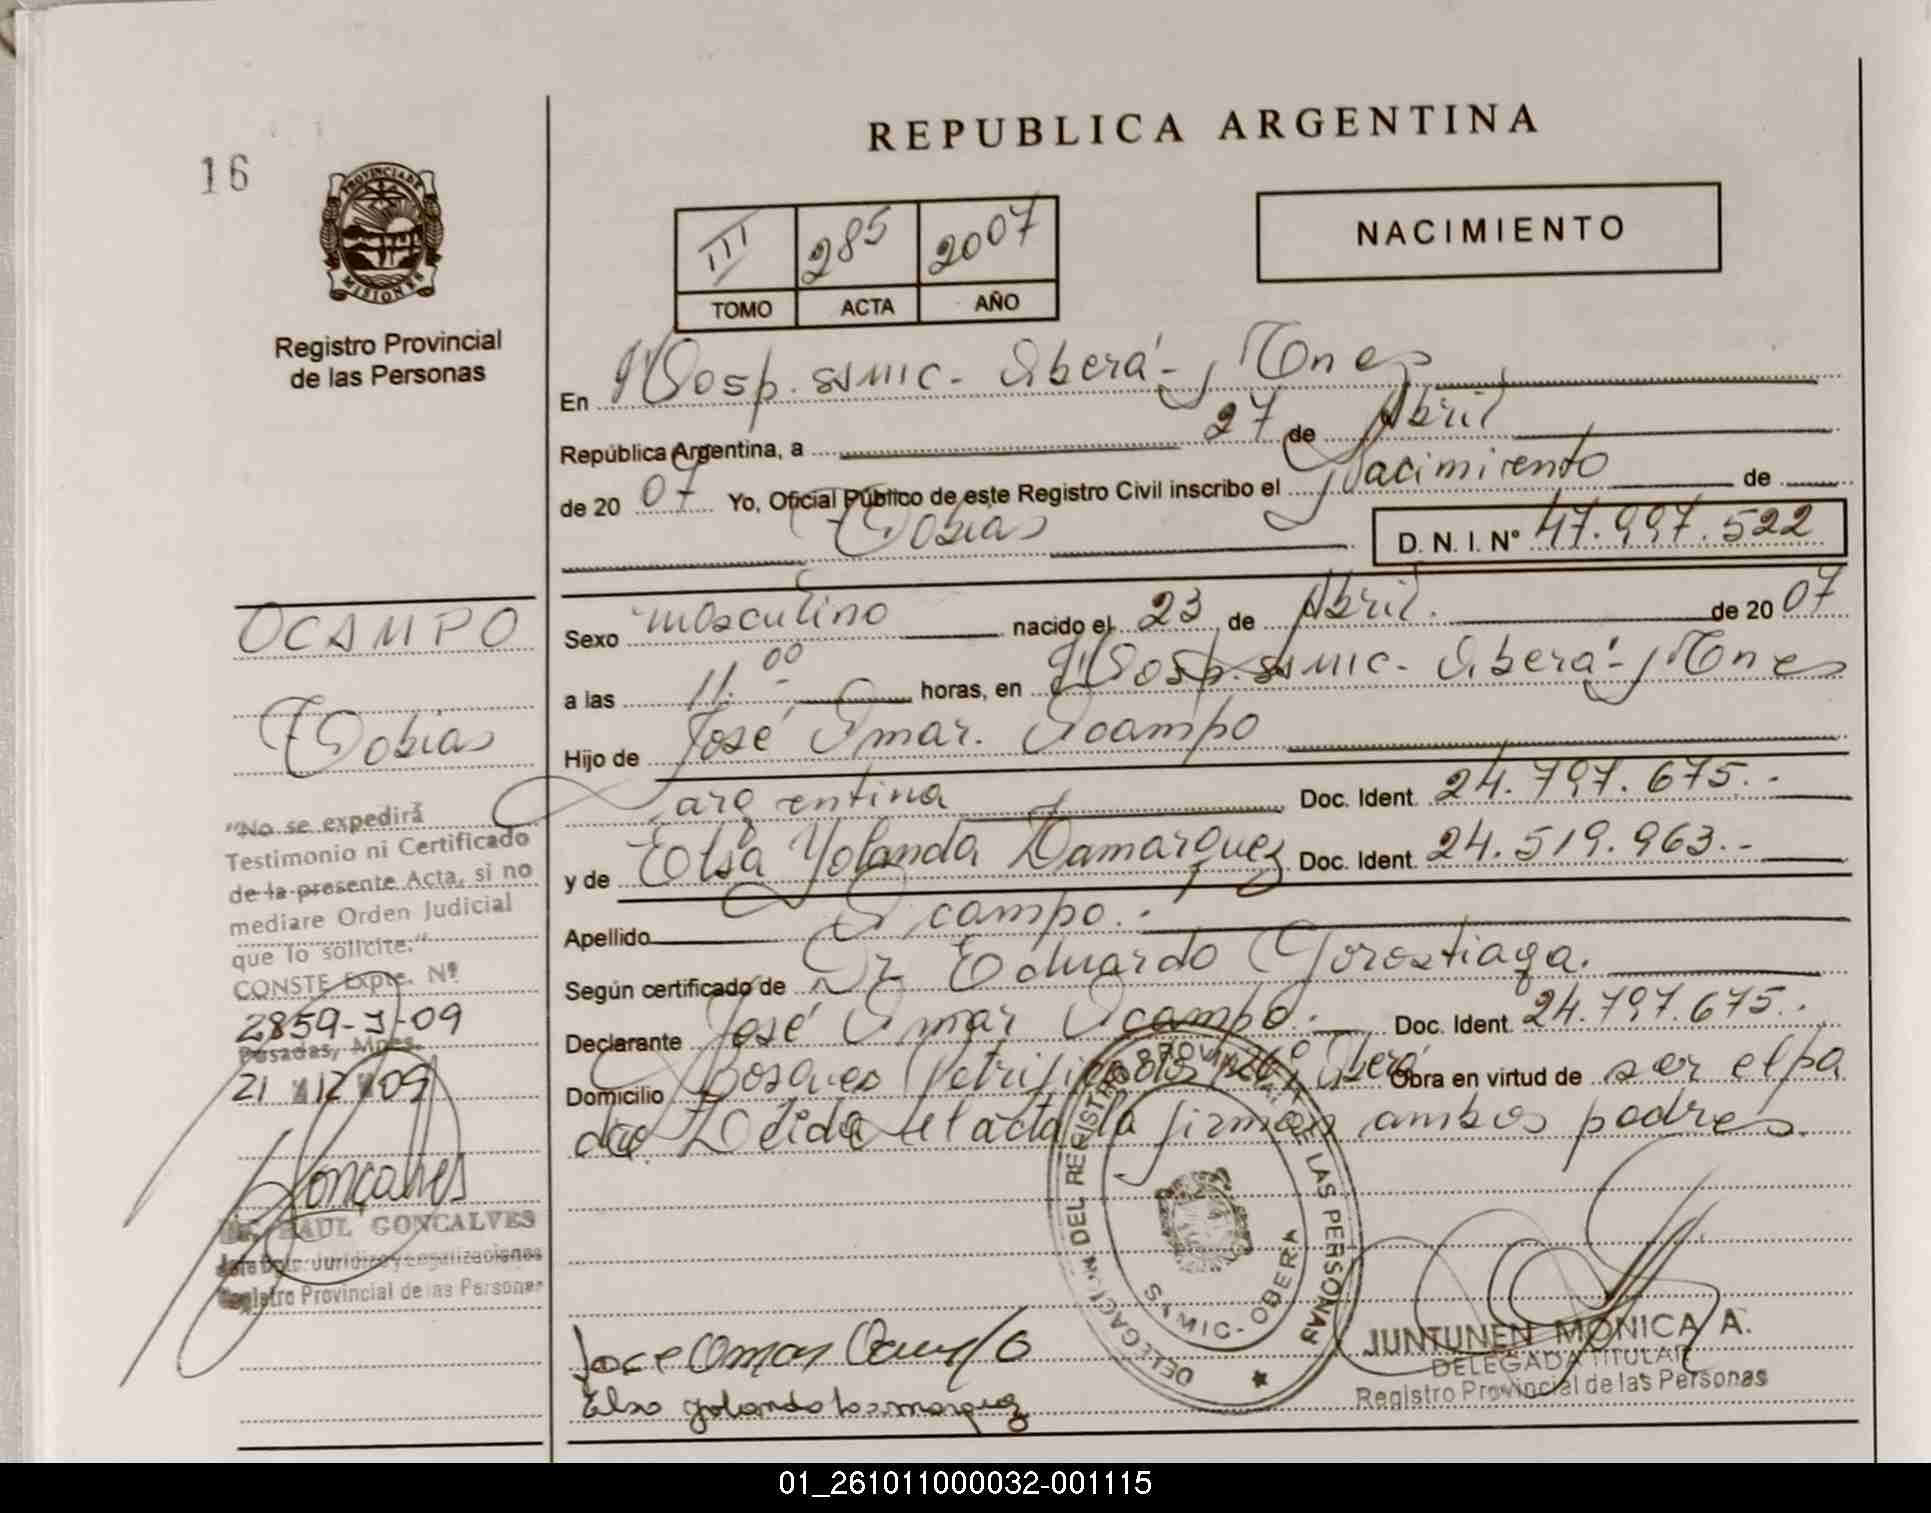 REPUBLICA ARGENTINA
16
PROVINCIA DE
MISIONES
Registro Provincial
de las Personas
III 285 2007
TOMO ACTA AÑO
NACIMIENTO
En Hosp. SAMIC - Oberá - Mnes
República Argentina, a 27 de Abril
de 20 07 Yo, Oficial Público de este Registro Civil inscribo el Nacimiento de
Tobias D. N. I. Nº 47.997.522
OCAMPO
Tobias
Sexo masculino nacido el 23 de Abril. de 20 07
a las 11.00 horas, en Hosp. SAMIC - Oberá - Mnes
Hijo de José Omar Ocampo
argentina Doc. Ident. 24.797.675.-
y de Elsa Yolanda Damarquez Doc. Ident. 24.519.963.-
Apellido Ocampo.-
Según certificado de Dr Eduardo Gorostiaga.
Declarante José Omar Ocampo. Doc. Ident. 24.797.675.
Domicilio Bosques Oberá Obra en virtud de ser el pa
dre. Leida el acta la firman ambos padres.
"No se expedirá
Testimonio ni Certificado
de la presente Acta, si no
mediare Orden Judicial
que lo solicite."
CONSTE Expte. Nº
2859-J-09
Posadas, Mnes.
21 12 09
Gonçalves
Dr. RAUL GONCALVES
Jefe Dpto. Jurídico y Legalizaciones
Registro Provincial de las Personas
DELEGACION DEL REGISTRO PROVINCIAL DE LAS PERSONAS
SAMIC - OBERA
Jose Omar Ocampo
Elsa Yolanda
JUNTUNEN MONICA A.
DELEGADA TITULAR
Registro Provincial de las Personas
01_261011000032-001115